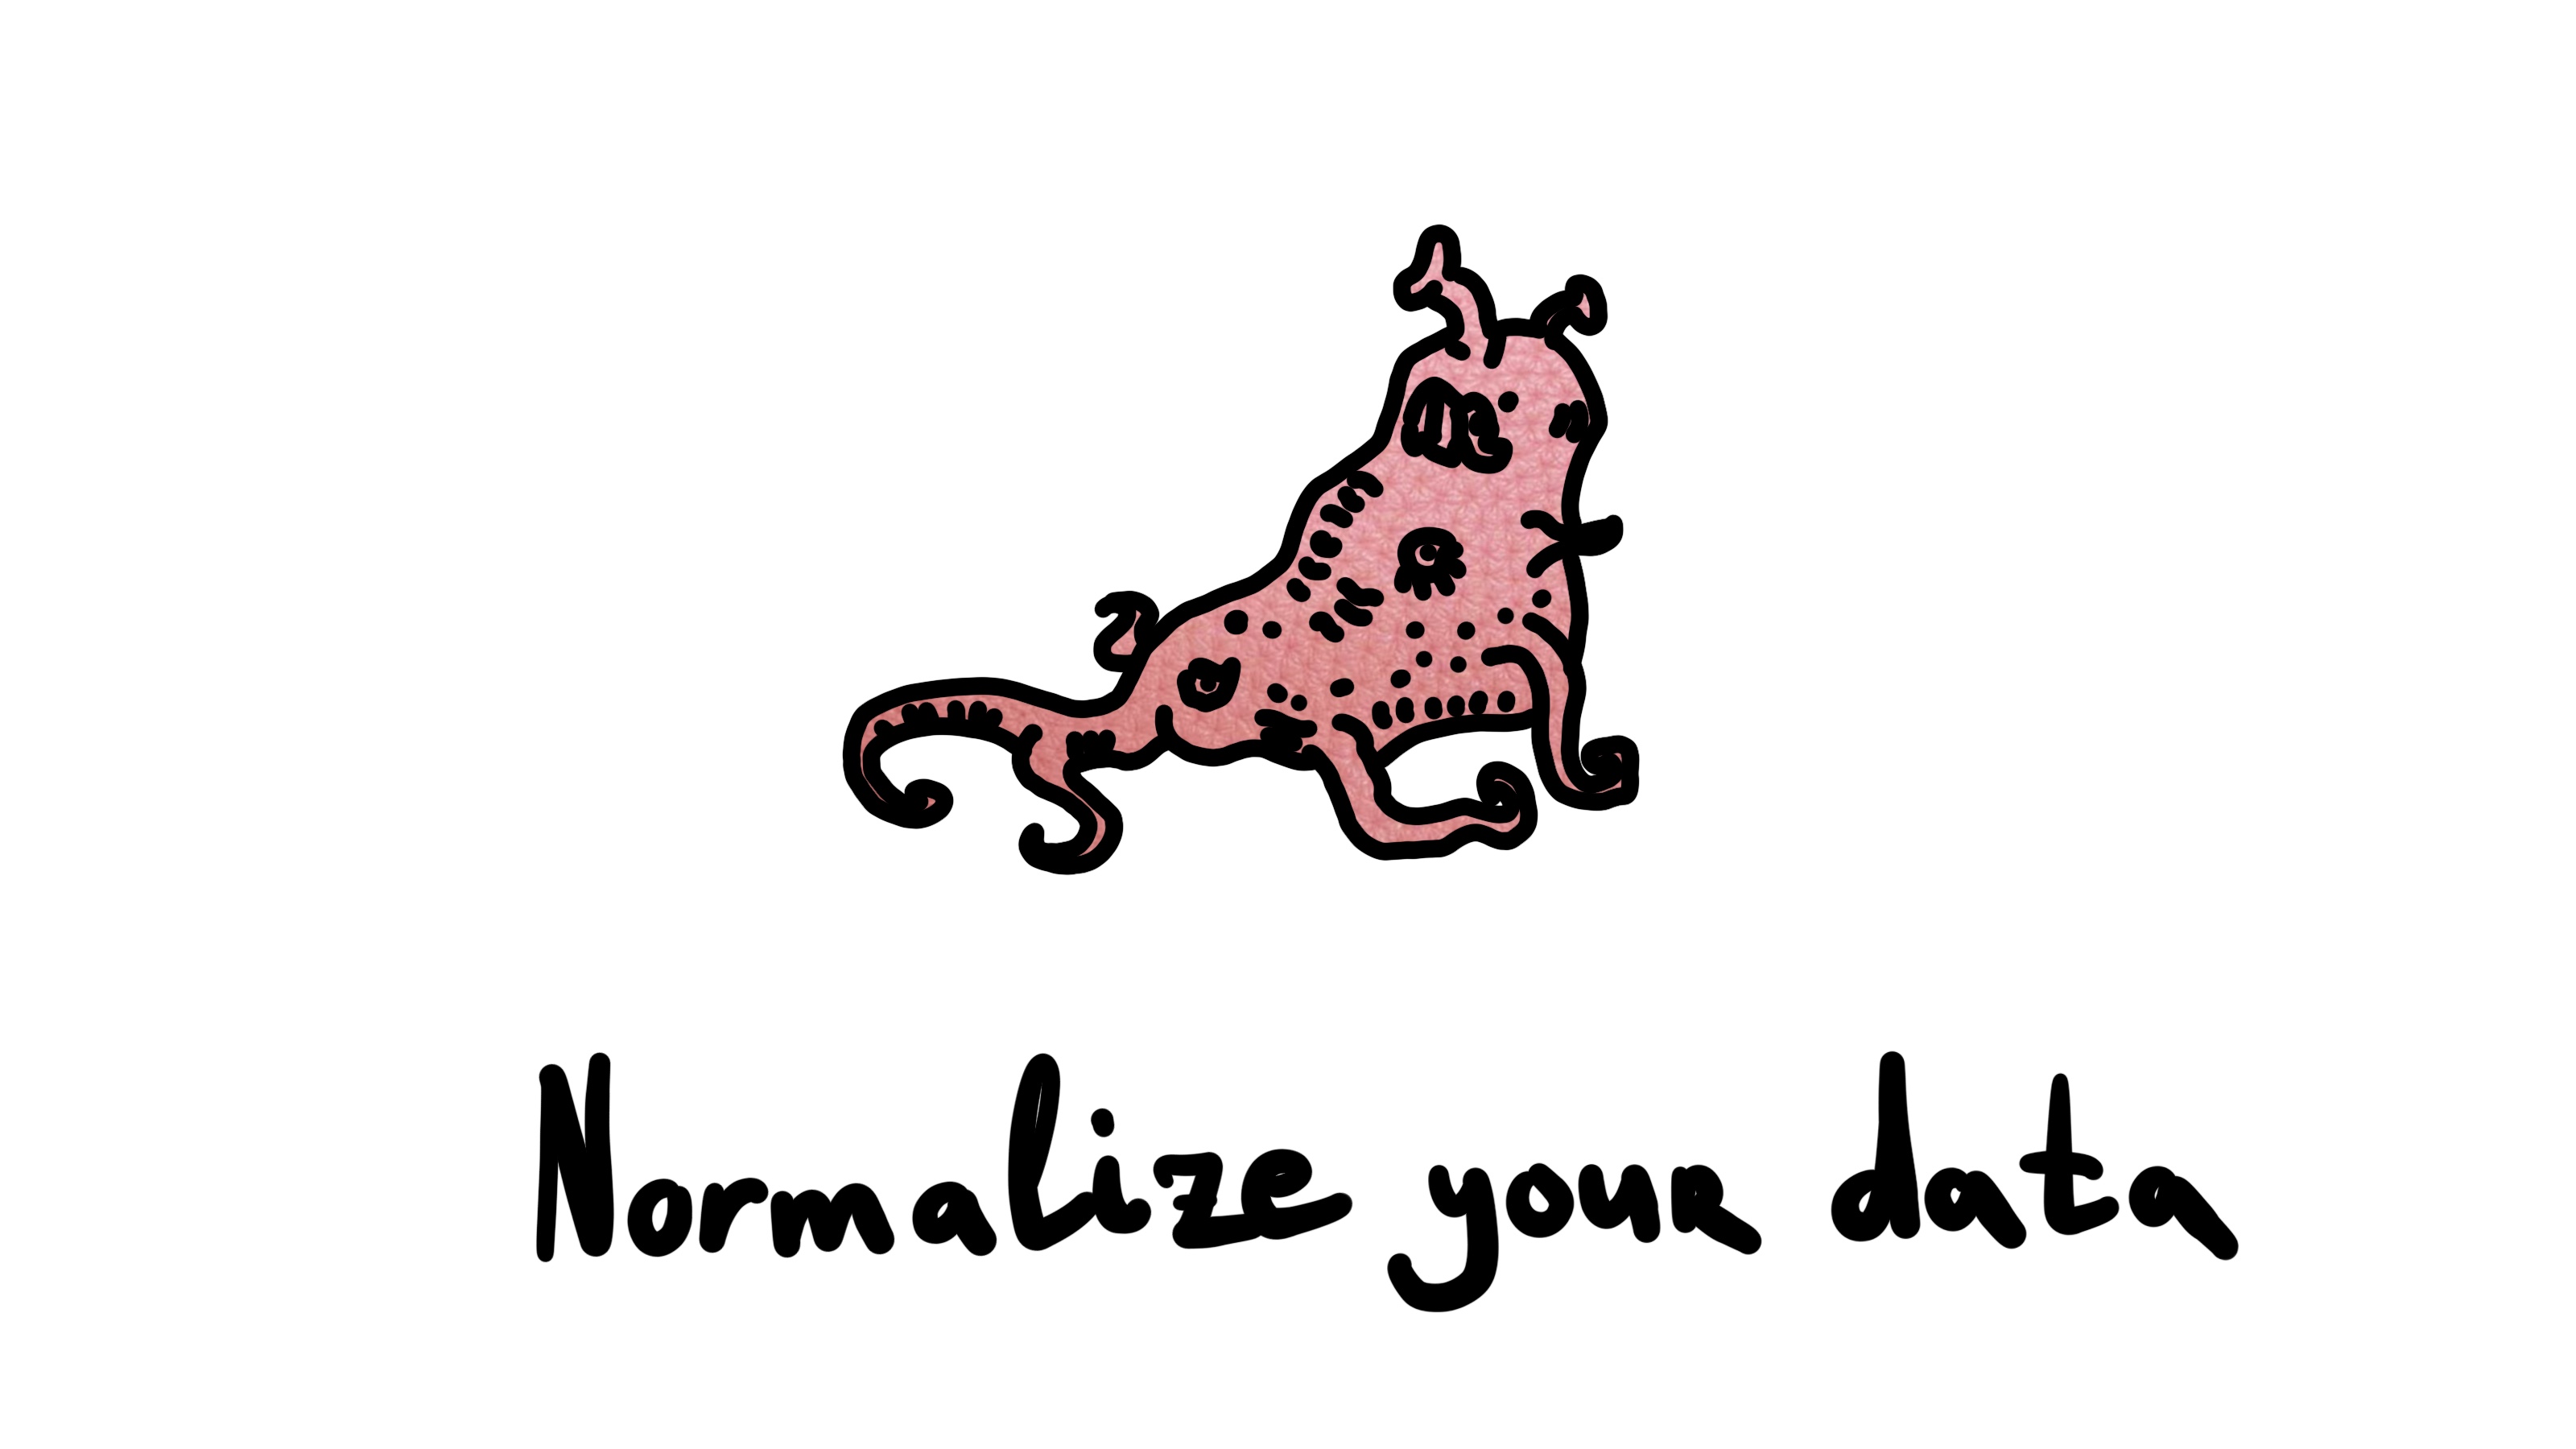 Normalize your data